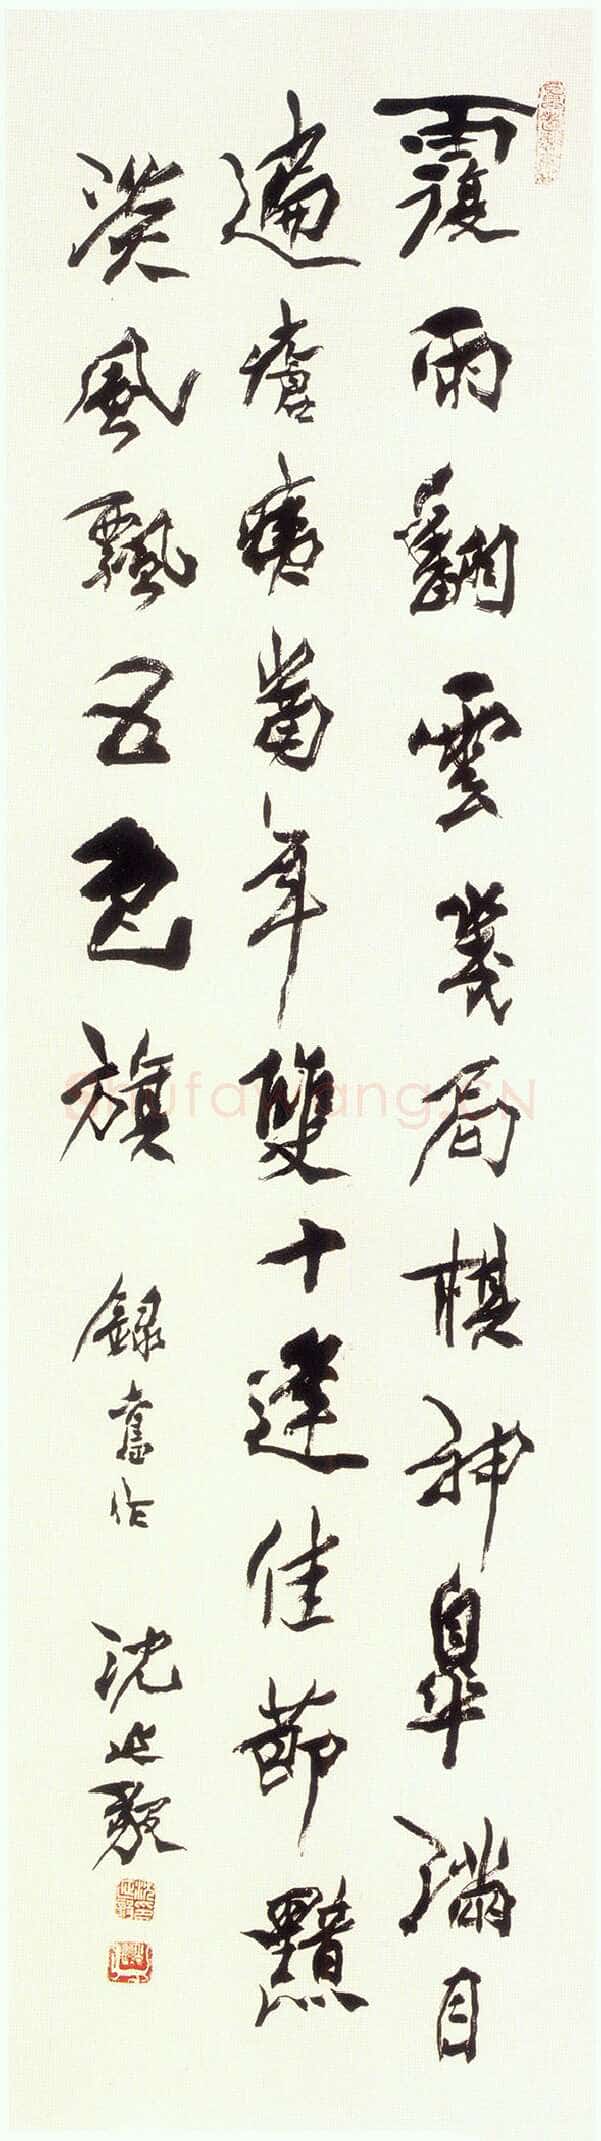 覆雨翻雲幾局棋神皋滿目
遍瘡痍當年雙十逢佳節黯
淡風飄五色旗 錄舊作 沈延毅
Shufawang.CN